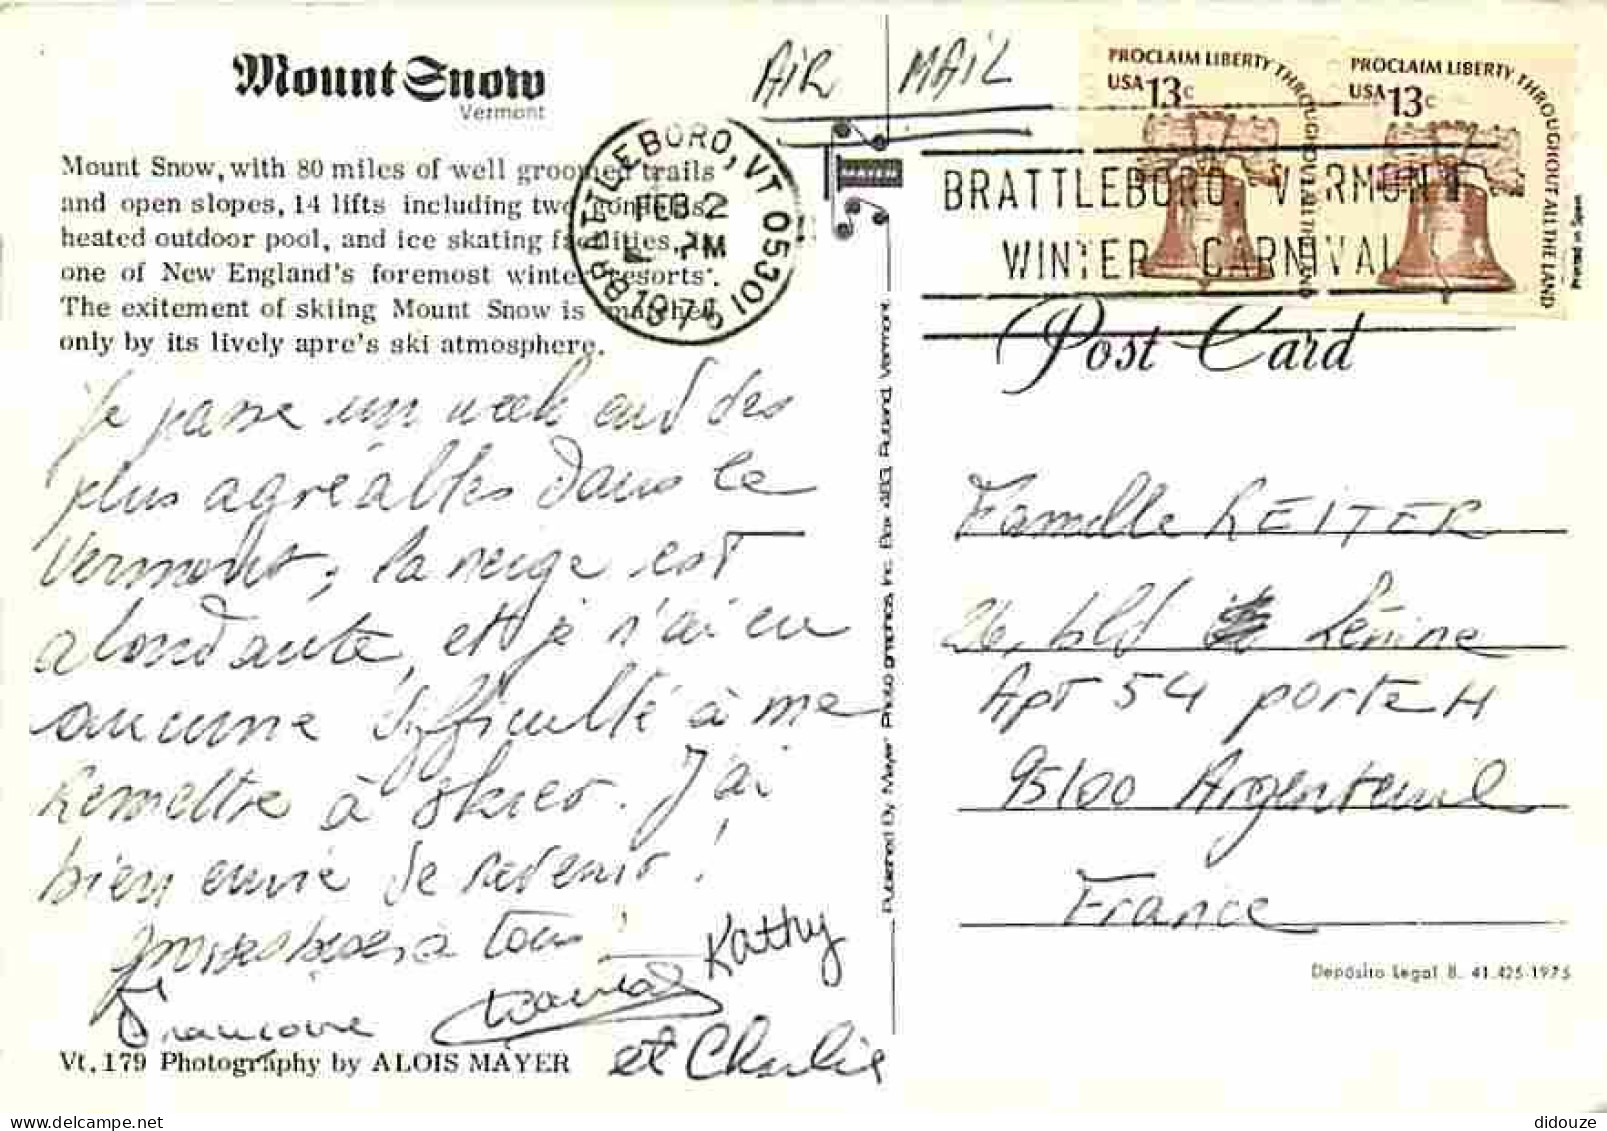 Mount Snow
Vermont
Mount Snow, with 80 miles of well groomed trails
and open slopes, 14 lifts including two gondolas,
heated outdoor pool, and ice skating facilities, is
one of New England's foremost winter resorts.
The exitement of skiing Mount Snow is matched
only by its lively apre's ski atmosphere.
Je passe un week end des
plus agréables dans le
Vermont, la neige est
abondante, et je n'ai eu
aucune difficulté à me
remettre à skier. J'ai
bien envie de revenir!
à tous
Kathy
Francoise
et Charlie
Vt. 179 Photography by ALOIS MAYER
Published By Mayer Photo graphics, Inc. Box 483, Rutland, Vermont.
AIR MAIL
PROCLAIM LIBERTY THROUGHOUT ALL THE LAND
USA 13c
PROCLAIM LIBERTY THROUGHOUT ALL THE LAND
USA 13c
BRATTLEBORO, VT 05301
FEB 2
PM
1976
BRATTLEBORO, VERMONT
WINTER CARNIVAL
Printed in Spain
Post Card
Famille REITER
26, bld Lénine
Apt 54 porte H
95100 Argenteuil
France
Depósito Legal B. 41.425-1975
didouze